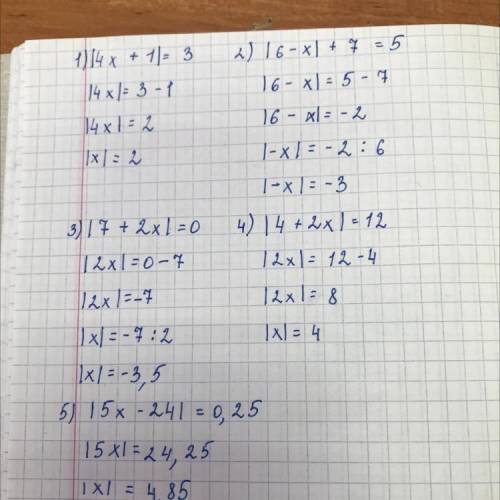 1) |4x + 1| = 3
|4x| = 3 - 1
|4x| = 2
|x| = 2
2) |6 - x| + 7 = 5
|6 - x| = 5 - 7
|6 - x| = -2
|-x| = -2 : 6
|-x| = -3
3) |7 + 2x| = 0
|2x| = 0 - 7
|2x| = -7
|x| = -7 : 2
|x| = -3,5
4) |4 + 2x| = 12
|2x| = 12 - 4
|2x| = 8
|x| = 4
5) |5x - 24| = 0,25
|5x| = 24,25
|x| = 4,85